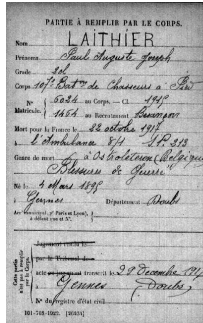 PARTIE À REMPLIR PAR LE CORPS.
Nom LAITHIER
Prénoms Paul Auguste Joseph
Grade sol
Corps 107e Batn de Chasseurs à Pied
N° 6024 au Corps. — Cl. 1915
Matricule. 1464 au Recrutement Besançon
Mort pour la France le 22 octobre 1917
à l'Ambulance 8/1 S.P. 213
Genre de mort à Oostvleteren (Belgique)
Blessures de Guerre
Né le 4 Mars 1895
Gennes Département Doubs
Arr. municipal (pr Paris et Lyon),
à défaut rue et N°.
Cette partie
n'est pas à remplir
par le Corps.
Jugement rendu le
par le Tribunal de
acte ou jugement transcrit le 29 Décembre 1917
Gennes (Doubs)
N° du registre d'état civil
101-708-1922. [26434]